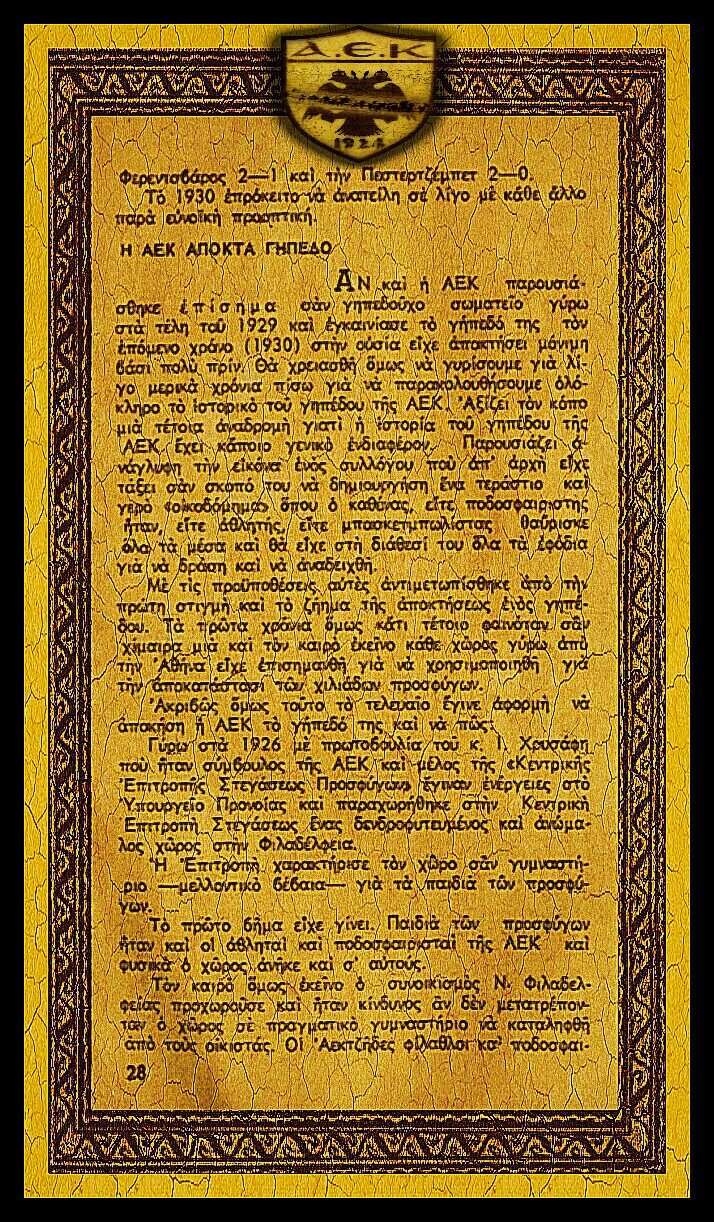 Α.Ε.Κ
1924
Φερεντσβάρος 2—1 καὶ τὴν Πεστερτζέμπετ 2—0.
Τό 1930 ἐπρόκειτο νὰ ἀνατείλη σὲ λίγο μὲ κάθε ἄλλο
παρὰ εὐνοϊκὴ προοπτική.
Η ΑΕΚ ΑΠΟΚΤΑ ΓΗΠΕΔΟ
ΑΝ καὶ ἡ ΑΕΚ παρουσιά-
σθηκε ἐπίσημα σὰν γηπεδοῦχο σωματεῖο γύρω
στὰ τέλη τοῦ 1929 καὶ ἐγκαινίασε τὸ γήπεδό της τὸν
ἑπόμενο χρόνο (1930) στὴν οὐσία εἶχε ἀποκτήσει μόνιμη
βάσι πολὺ πρίν. Θὰ χρειασθῆ ὅμως νὰ γυρίσουμε γιὰ λί-
γο μερικὰ χρόνια πίσω γιὰ νὰ παρακολουθήσουμε ὁλό-
κληρο τὸ ἱστορικὸ τοῦ γηπέδου τῆς ΑΕΚ. Ἀξίζει τὸν κόπο
μιὰ τέτοια ἀναδρομὴ γιατὶ ἡ ἱστορία τοῦ γηπέδου τῆς
ΑΕΚ ἔχει κάποιο γενικὸ ἐνδιαφέρον. Παρουσιάζει ἀ-
νάγλυφη τὴν εἰκόνα ἑνὸς συλλόγου ποὺ ἀπ' ἀρχὴ εἶχε
τάξει σὰν σκοπό του νὰ δημιουργήση ἕνα τεράστιο καὶ
γερὸ «οἰκοδόμημα» ὅπου ὁ καθένας, εἴτε ποδοσφαιριστὴς
ἦταν, εἴτε ἀθλητής, εἴτε μπασκετμπωλίστας θαὔρισκε
ὅλα τὰ μέσα καὶ θὰ εἶχε στὴ διάθεσί του ὅλα τὰ ἐφόδια
γιὰ νὰ δράση καὶ νὰ ἀναδειχθῆ.
Μὲ τὶς προϋποθέσεις αὐτὲς ἀντιμετωπίσθηκε ἀπὸ τὴν
πρώτη στιγμὴ καὶ τὸ ζήημα τῆς ἀποκτήσεως ἑνὸς γηπέ-
δου. Τὰ πρῶτα χρόνια ὅμως κάτι τέτοιο φαινόταν σὰν
χίμαιρα μιὰ καὶ τὸν καιρὸ ἐκεῖνο κάθε χῶρος γύρω ἀπὸ
τὴν Ἀθήνα εἶχε ἐπισημανθῆ γιὰ νὰ χρησιμοποιηθῆ γιὰ
τὴν ἀποκατάστασι τῶν χιλιάδων προσφύγων.
Ἀκριβῶς ὅμως τοῦτο τὸ τελευταῖο ἔγινε ἀφορμὴ νὰ
ἀποκήση ἡ ΑΕΚ τὸ γήπεδό της καὶ νὰ πῶς:
Γύρω στὰ 1926 μὲ πρωτοβουλία τοῦ κ. Ι. Χρυσάφη
ποὺ ἦταν σύμβουλος τῆς ΑΕΚ καὶ μέλος τῆς «Κεντρικῆς
Ἐπιτροπῆς Στεγάσεως Προσφύγων» ἔγιναν ἐνέργειες στὸ
Ὑπουργεῖο Προνοίας καὶ παραχωρήθηκε στὴν Κεντρικὴ
Ἐπιτροπὴ Στεγάσεως ἕνας δενδροφυτευμένος καὶ ἀνώμα-
λος χῶρος στὴν Φιλαδέλφεια.
Ἡ Ἐπιτροπὴ χαρακτήρισε τὸν χῶρο σὰν γυμναστή-
ριο —μελλοντικὸ βέβαια— γιὰ τὰ παιδιὰ τῶν προσφύ-
γων.
Τὸ πρῶτο βῆμα εἶχε γίνει. Παιδιὰ τῶν προσφύγων
ἦταν καὶ οἱ ἀθληταὶ καὶ ποδοσφαιρισταὶ τῆς ΑΕΚ καὶ
φυσικὰ ὁ χῶρος ἀνῆκε καὶ σ' αὐτούς.
Τὸν καιρὸ ὅμως ἐκεῖνο ὁ συνοικισμὸς Ν. Φιλαδελ-
φείας προχωροῦσε καὶ ἦταν κίνδυνος ἂν δὲν μετατρέπον-
ταν ὁ χῶρος σὲ πραγματικὸ γυμναστήριο νὰ καταληφθῆ
ἀπὸ τοὺς οἰκιστάς. Οἱ Ἀεκτζῆδες φίλαθλοι κα' ποδοσφαι-
28